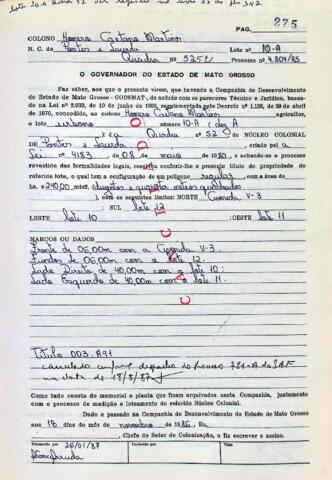 lote 10.A
275
COLONO Homero Caetano Martins
N. C. de Pontes e Lacerda Lote nº 10-A
Quadra Nº 52 Processo nº 4.804/85
O GOVERNADOR DO ESTADO DE MATO GROSSO
Faz saber, aos que o presente virem, que havendo a Companhia de Desenvolvimento
do Estado de Mato Grosso - CODEMAT-, de acôrdo com os pareceres Técnico e Jurídico, bases-
os na Lei nº 2.933, de 19 de junho de 1969, regulamentada pelo Decreto nº 1.138, de 30 de abril
de 1970, concedido, ao colono Homero Caetano Martins agricultor,
o lote urbano número 10-A
da Quadra nº 52 do NÚCLEO COLONIAL
DE Pontes e Lacerda criado pela
Lei 4183, de 08 de maio de 1980, e achando-se o processo
revestido das formalidades legais, resolve conferir-lhe o presente título de propriedade do
referido lote, o qual tem a configuração de um polígono regular, com a área de
ha. 0240,00 mts2. (duzentos e quarenta metros quadrados)
), com os seguintes limites: NORTE Avenida V-3
; SUL lote 12
LESTE lote 10 ;OESTE lote 11
MARCOS OU DADOS
Frente de 06,00m com a Avenida V-3
Fundos de 06,00m com o lote 12.
Lado Direito de 40,00m com o lote 10;
Lado Esquerdo de 40,00m com o lote 11.
Título 003.A91
cancelado conforme despacho do
na data de
Como tudo consta do memorial e planta que ficam arquivados nesta Companhia, juntamente
com o processo de medição e loteamento do referido Núcleo Colonial.
Dado e passado na Companhia de Desenvolvimento do Estado de Mato Grosso
aos 18 dias do mês de novembro de 1986, Eu,
, Chefe do Setor de Colonização, o fiz escrever e assino.
Transcrito por 26/01/87
Conferido por
Visto